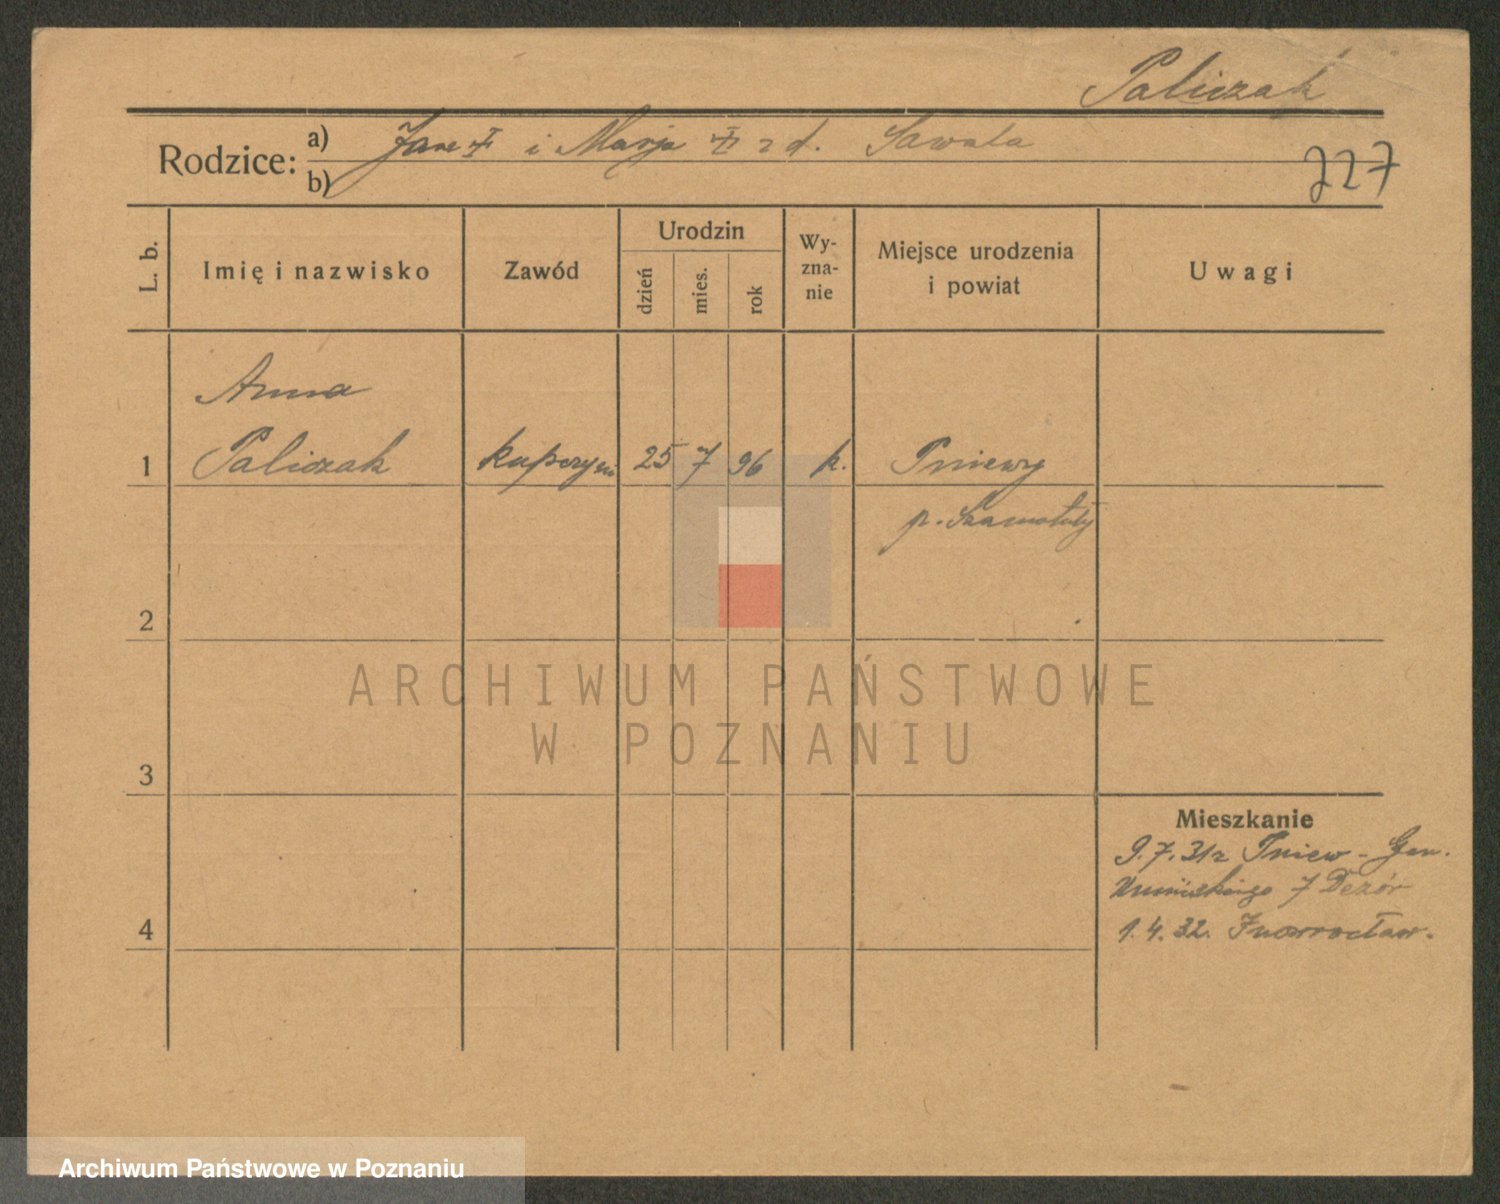 Paliczak
Rodzice: a) Jan i Marja z d. Sawala
b)
727
L. b.
Imię i nazwisko
Zawód
Urodzin
dzień
mies.
rok
Wy-
zna-
nie
Miejsce urodzenia
i powiat
Uwagi
Anna
1 Paliczak kupczyni 25 7 96 k. Pniewy
p. Szamotuły
2
ARCHIWUM PAŃSTWOWE
W POZNANIU
3
Mieszkanie
9.7.31 z Pniew - Gen.
7 Dezór
4
1.4.32. Inowrocław.
Archiwum Państwowe w Poznaniu